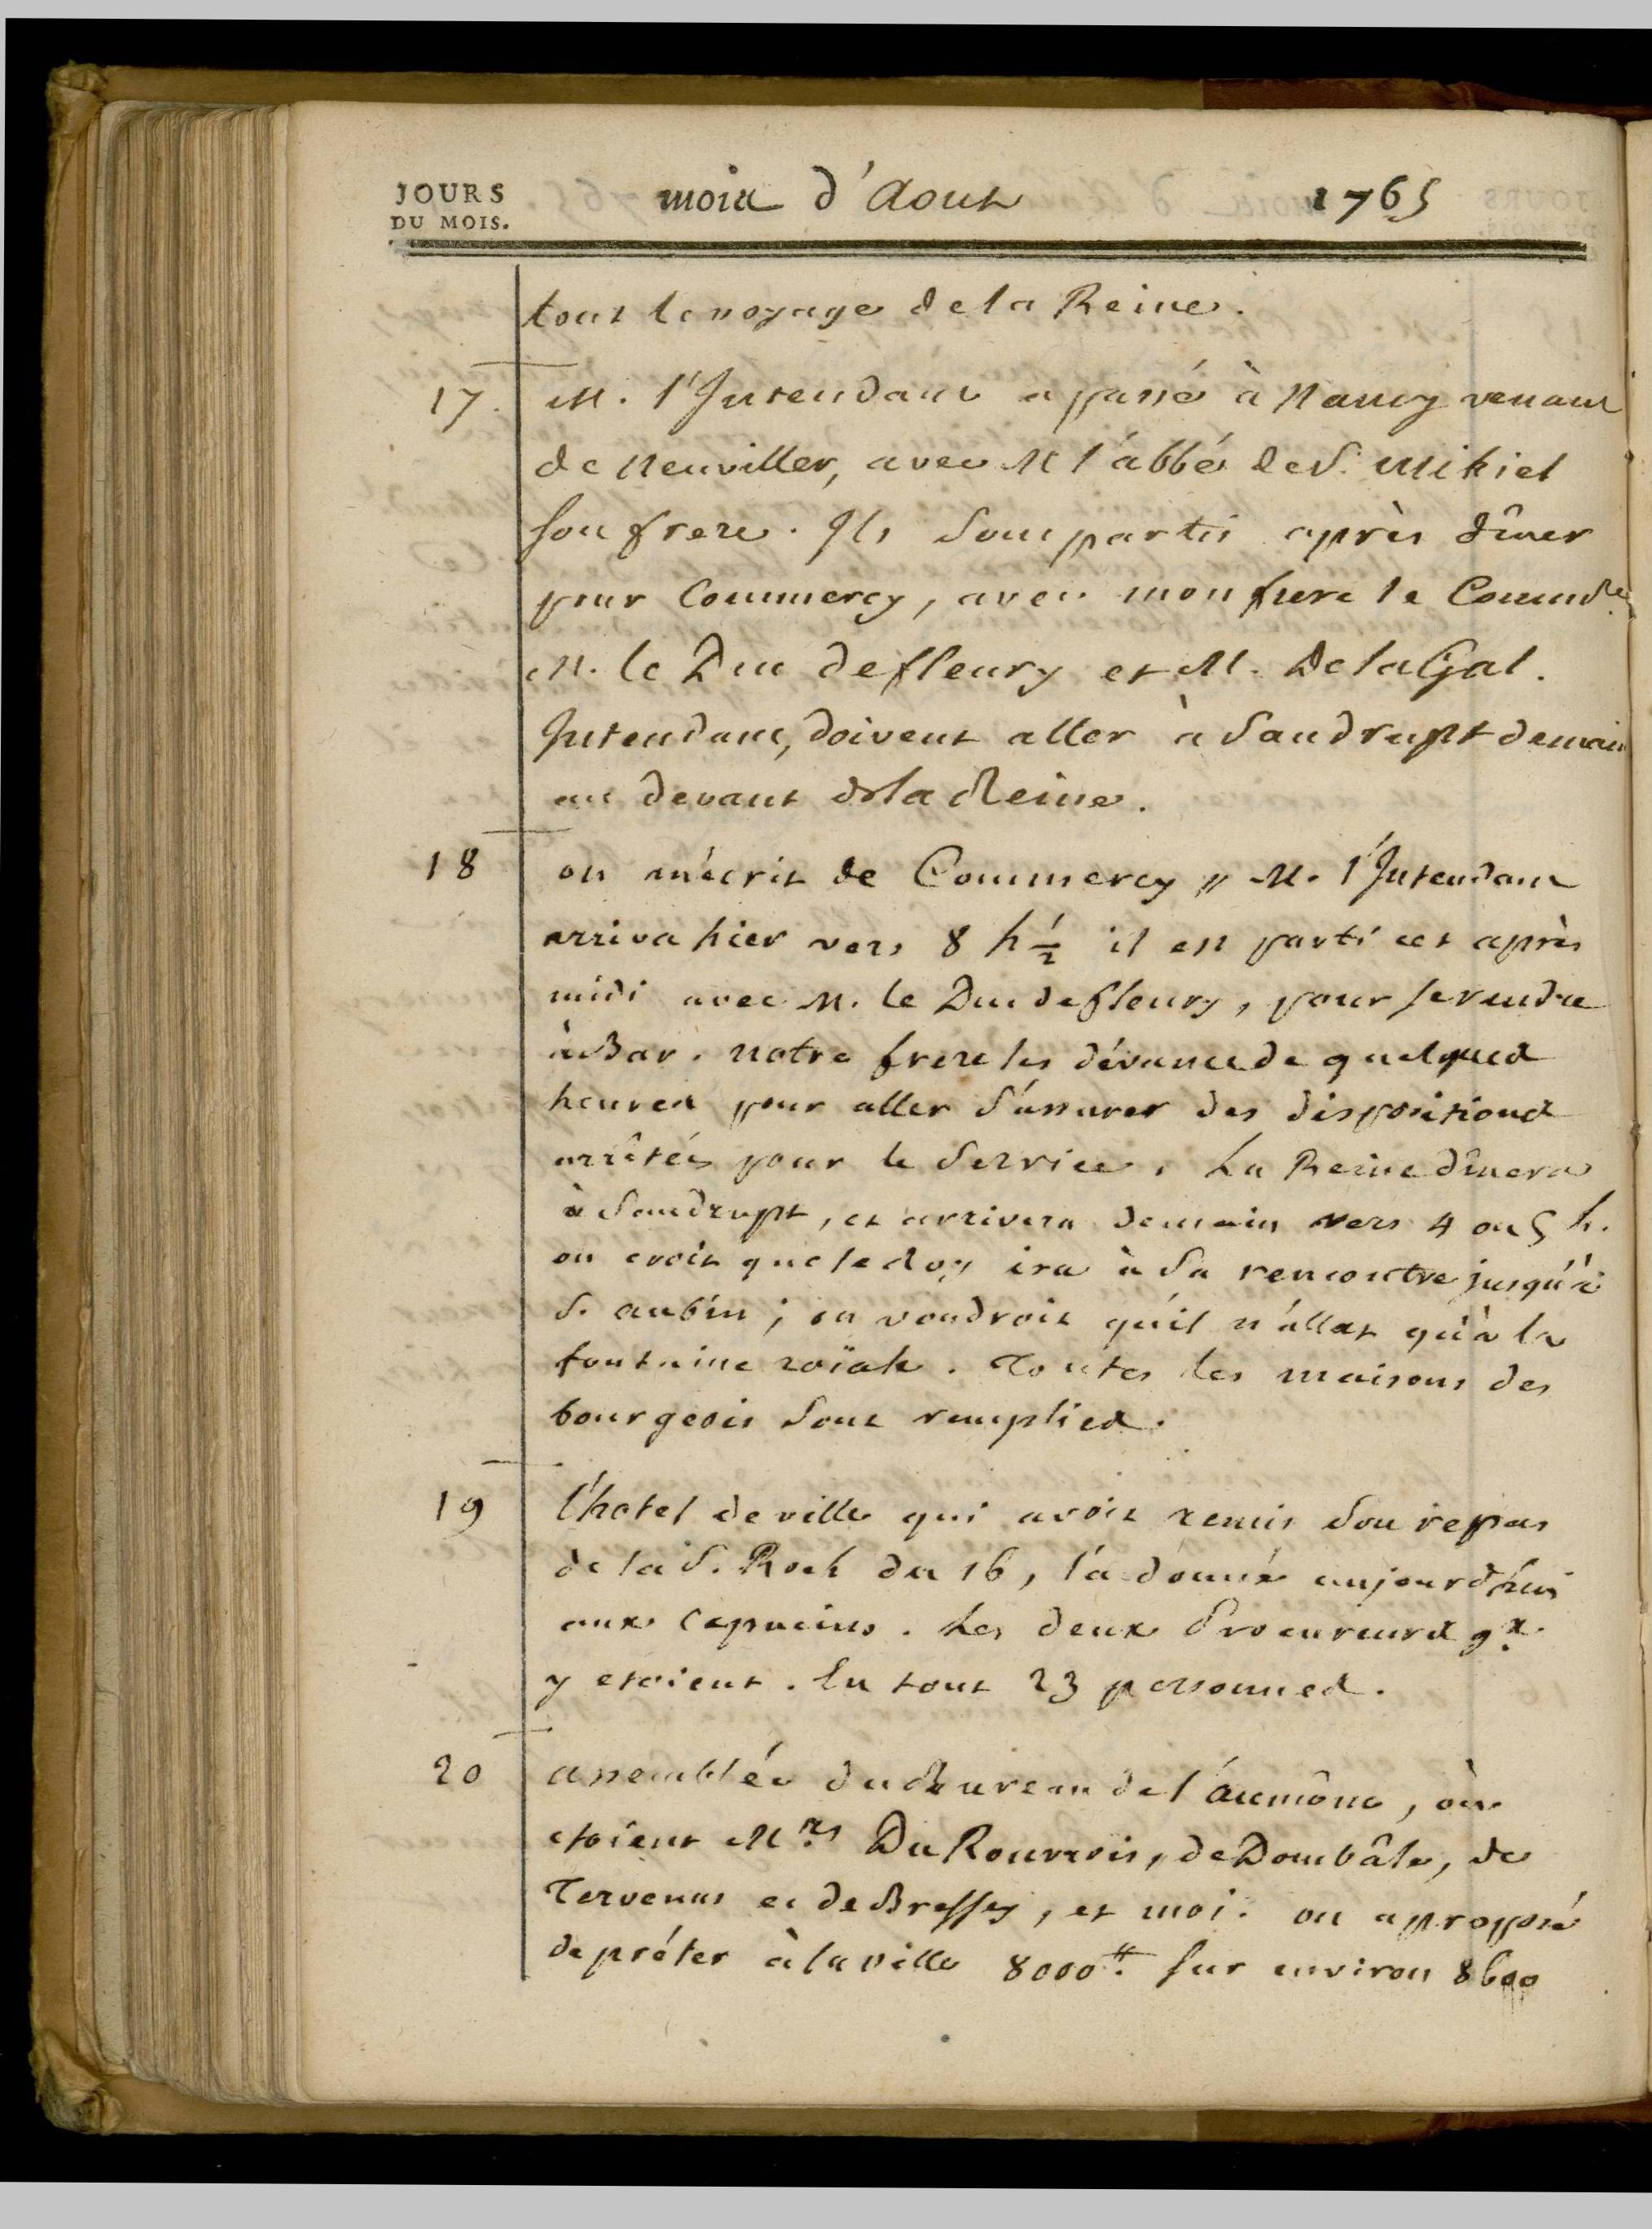 JOURS
DU MOIS.
mois d'Aout 1765
tout le voyage de la Reine.
17. M. l'Intendant a passé à Nancy venant
de Neuviller, avec M l'abbé de S. Mihiel
son frere. Ils sont partis après dîner
pour Commercy, avec mon frere le Commdre
M. le Duc de fleury et M. De la Gal.
Intendant, doivent aller à Saudrupt demain
au devant de la Reine.
18 on m'écrit de Commercy „ M. l'Intendant
arriva hier vers 8 h 1/2 il est parti cet après
midi avec M. le Duc de fleury, pour se rendre
à Bar. notre frere les dévance de quelques
heures pour aller s'assurer des dispositions
arrêtées pour le service. La Reine dînera
à Saudrupt, et arrivera demain vers 4 ou 5 h.
on croit que le Roy ira à sa rencontre jusqu'à
S. aubin ; on voudroit qu'il n'allat qu'à la
fontaine roïale. Toutes les maisons des
bourgeois sont remplies.
19 l'hotel de ville qui avoit remis son repas
de la S. Roch du 16, l'a donné aujourd'hui
aux capucins. Les deux Procureurs gx.
y etoient. En tout 23 personnes.
20 assemblée du Bureau de l'aumône, où
etoient Mrs Du Rouvrois, de Dombâle, de
Tervenus et de Bressey, et moi. on a proposé
de prêter à la ville 8000 ₶. sur environ 8600